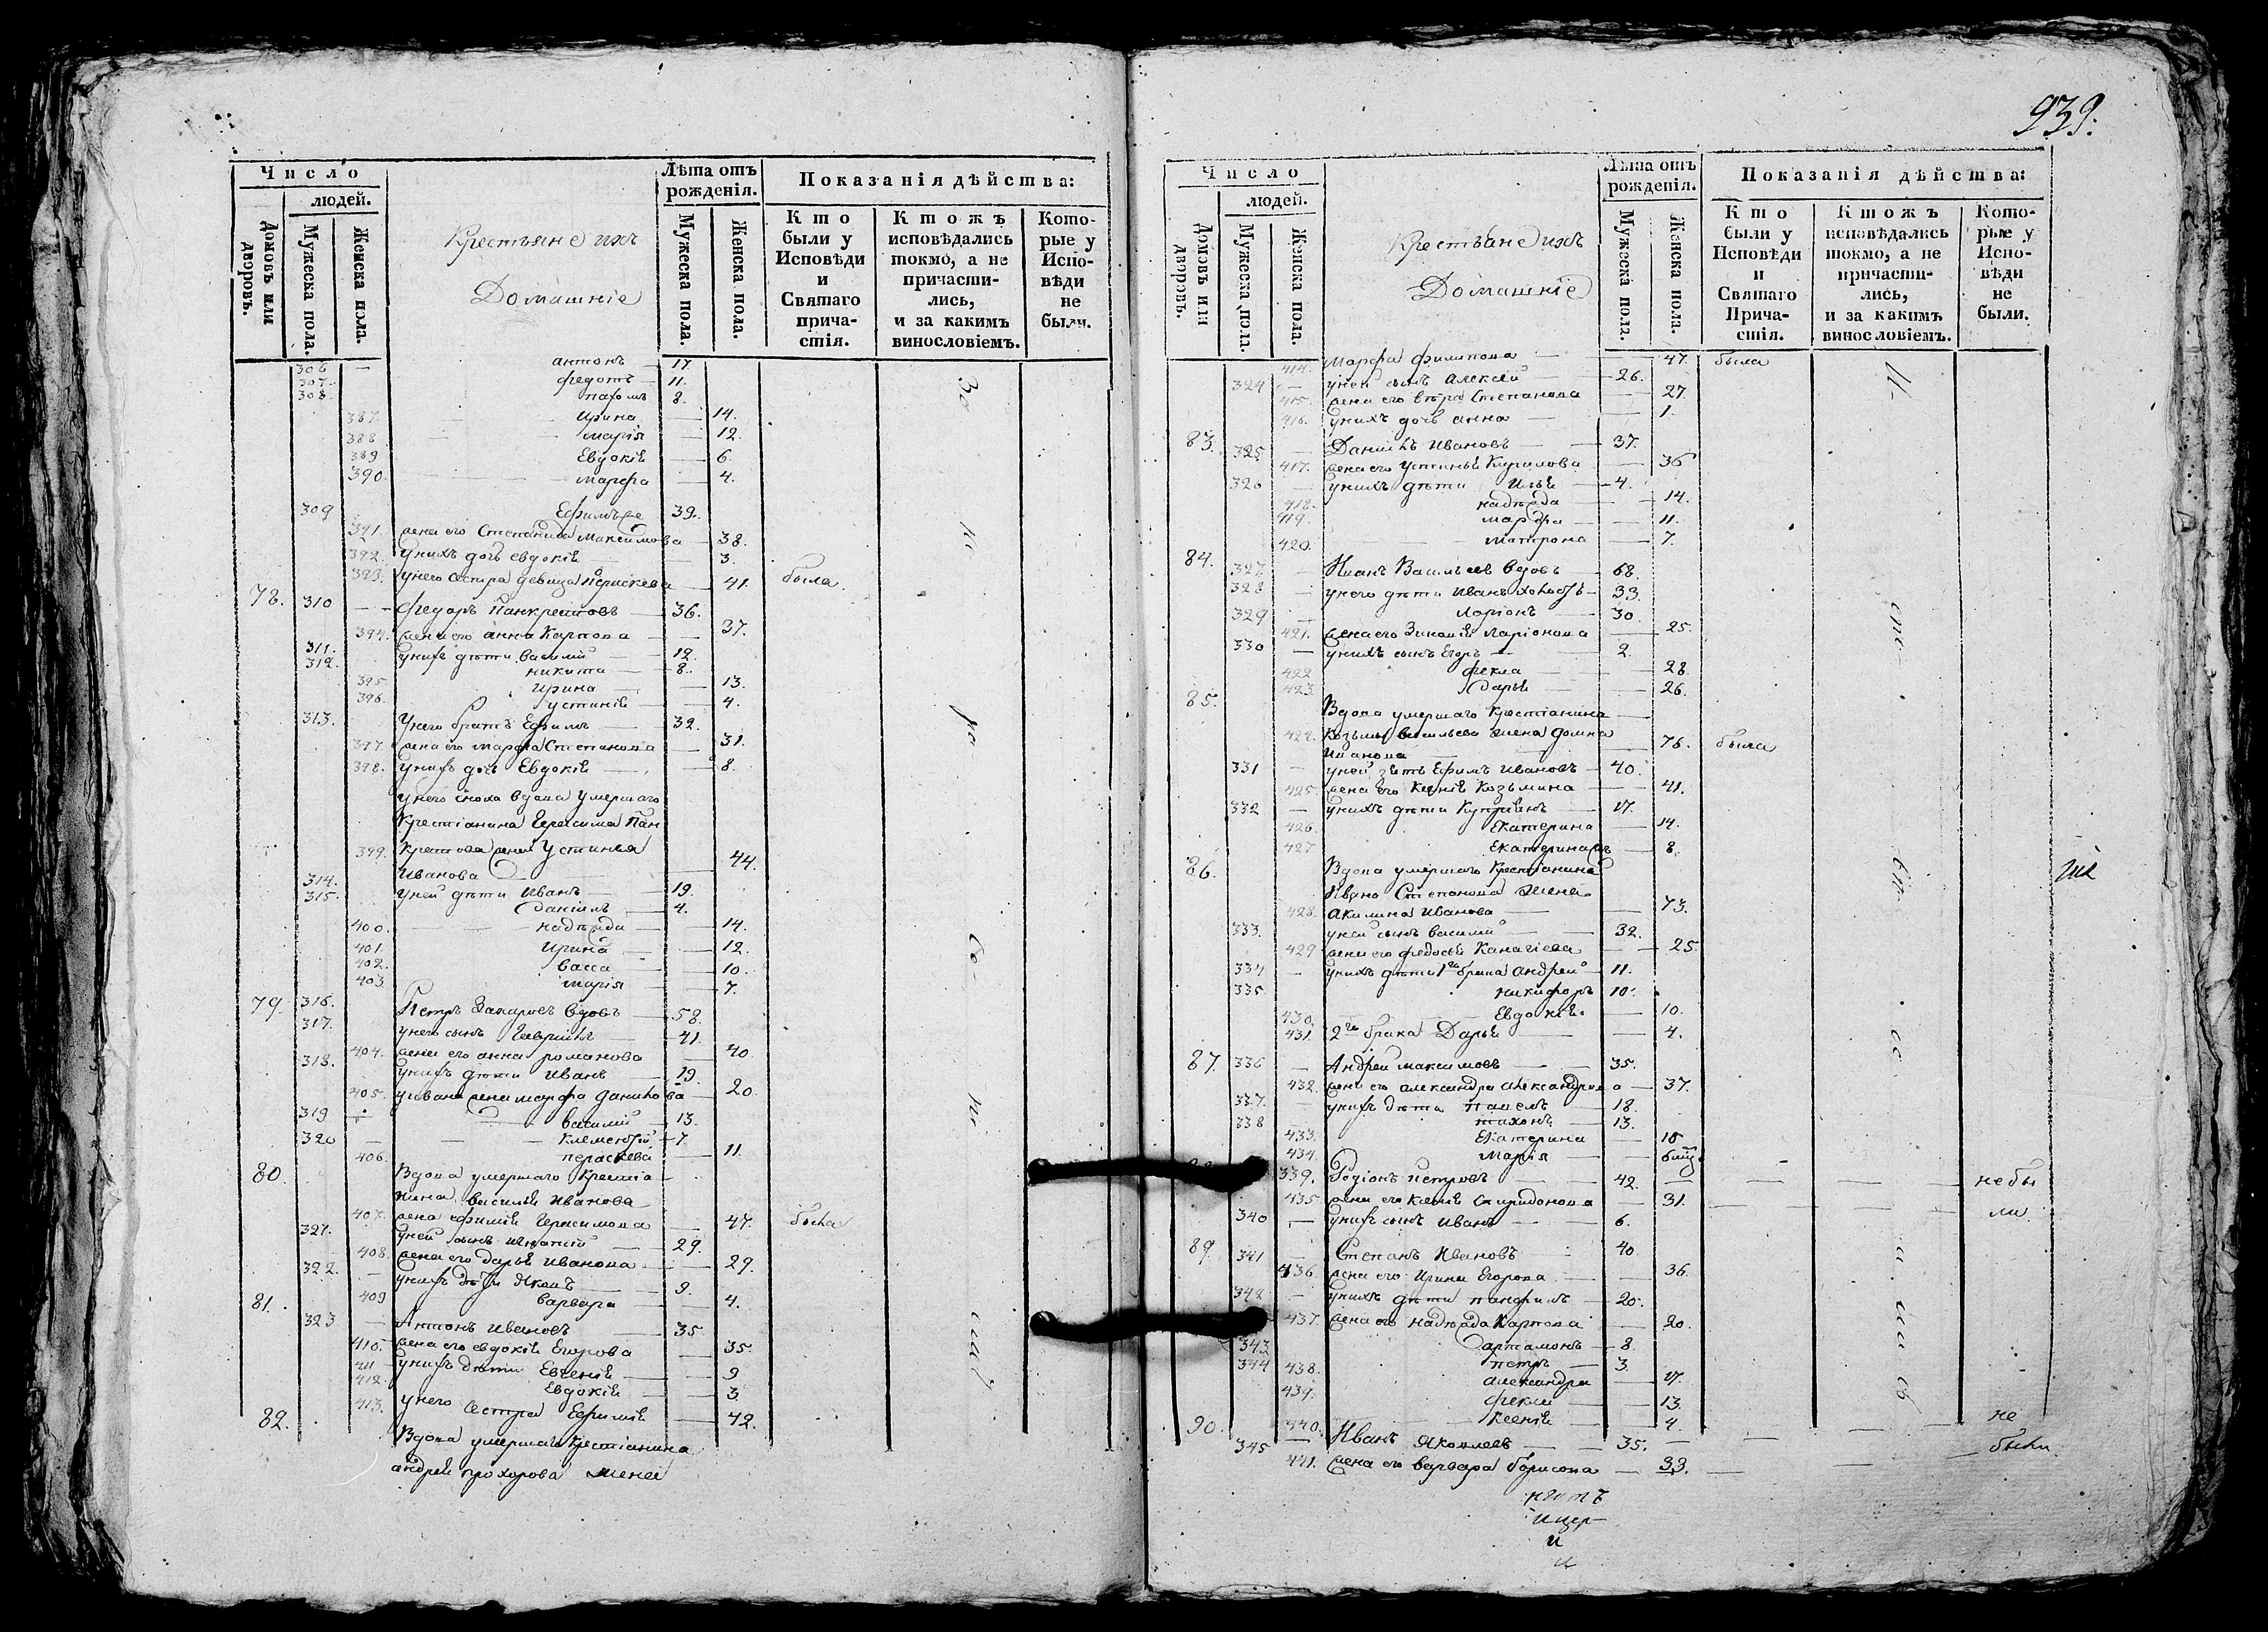 Число
людей.
Домовъ или дворовъ.
Мужеска пола.
Женска пола.
Крестьяне ихъ
Домашніе
Лѣта отъ рожденія.
Мужеска пола.
Женска пола.
Показанія дѣйства:
Кто были у Исповѣди и Святаго причастія.
Ктожъ исповѣдались токмо, а не причастились, и за какимъ винословіемъ.
Которые у Исповѣди не были.
306 — антонъ 17
307. федотъ — 11.
308. пахомъ 8.
387. Ирина — 14.
388 марія — 12.
389 Евдокія — 6.
390. марфа — 4.
309 Ефимъ 39.
391. жена его Степанида Максимова 38.
392. унихъ дочь евдокія 3.
393. унего сестра девица Параскева 41. была
78. 310 — федоръ Панкратовъ — 36.
394. жена его анна Карпова — 37.
311. унихъ дѣти василий — 12.
312. никита — 8.
395. Ирина — 13.
396. устинія — 4.
313. Унего братъ Ефимъ — 32.
397. жена его марфа Степанова — 31.
398. унихъ дочь Евдокія — 8.
унего сноха вдова умершаго
Крестіанина Герасима Пан
399. кратова жена Устинья 44.
Иванова
314. уней дѣти Иванъ — 19.
315. Даніилъ — 4.
400. надежда — 14.
401. Ирина — 12.
402. васса — 10.
403 марія — 7.
79. 316. Петръ Захаровъ вдовъ — 58.
317. унего сынъ Гаврiилъ — 41.
404. жена его анна романова — 40
318. унихъ дѣти Иванъ — 19.
405. уивана жена марфа данилова — 20.
319 — василий — 13.
320 — Клементій — 7.
406. параскева — 11.
80. Вдова умершаго Крестіа
нина василья Иванова
407. жена ефимія Герасимова — 47. была
321. уней сынъ игнатий — 29.
408. жена его дарья иванова — 29.
322. унихъ дѣти Яковъ — 9.
409 варвара — 4.
81. 323 — Антонъ Ивановъ — 35.
410. жена его евдокія Егорова — 35.
411 унихъ дѣти Евгенія — 9
412. Евдокія — 3
413. унего сестра Ефимія — 42.
82. Вдова умершаго крестіанина
андрея прохорова жена
939.
Число
людей.
Домовъ или дворовъ.
Мужеска пола.
Женска пола.
Крестьяне ихъ
Домашніе
Лѣта отъ рожденія.
Мужеска пола.
Женска пола.
Показанія дѣйства:
Кто были у Исповѣди и Святаго Причастія.
Ктожъ исповѣдались токмо, а не причастились, и за какимъ винословіемъ.
Которые у Исповѣди не были.
414. марфа филипова — 47. была
324 — уней сынъ алексей — 26.
415. жена его вѣра Степанова — 27.
416. унихъ дочь анна — 1.
83. 325 — Данилъ Ивановъ — 37.
417. жена его устинья Кирилова — 36
326 — унихъ дѣти Илья — 4.
418. надежда — 14.
419. марфа — 11.
420. матрона — 7.
84. 327. Иванъ Васильевъ вдовъ — 68.
328 — унего дѣти Иванъ холостъ — 33.
329 — Ларіонъ — 30.
421. жена его Зиновія Ларіонова — 25.
330 — унихъ сынъ Егоръ — 2.
422 фекла — 28.
423. дарья — 26.
85. Вдова умершаго крестіанина
424. Козьмы васильева жена домна 76. была
Иванова
331 — уней зять Ефимъ Ивановъ — 40.
425 жена его Ксенія Козьмина — 41.
332 — унихъ дѣти Купріянъ — 17.
426. Екатерина — 14.
427 Екатерина — 8.
86. Вдова умершаго Крестіанина
Ивана Степанова жена
428. акилина Иванова — 73.
333. уней сынъ василий — 32.
429 жена его федосья — 25.
334 — унихъ дѣти 1го брака андрей — 11.
335. никифоръ 10.
430. Евдокія — 10.
431. 2го брака Дарья — 4.
87. 336 — Андрей максимовъ — 35.
432. жена его александра александрова — 37.
337. унихъ дѣти павелъ — 18.
338 тихонъ — 13.
433. Екатерина — 15
434. марія —
339. Родіонъ петровъ — 42. — небы
435. жена его Ксенія Спиридонова — 31. ли
340 — унихъ сынъ Иванъ — 6.
89. 341 — Степанъ Ивановъ — 40.
436. жена его Ирина Егорова — 36.
342 — унихъ дѣти панфилъ — 20.
437. жена его надежда Карпова 20.
343. артамонъ — 8.
344 петръ — 3.
438. александра — 17.
439. фекла — 13.
440. Ксенія — 4.
90. 345 — Иванъ Яковлевъ — 35. — не
441. жена его варвара борисова — 33. — были